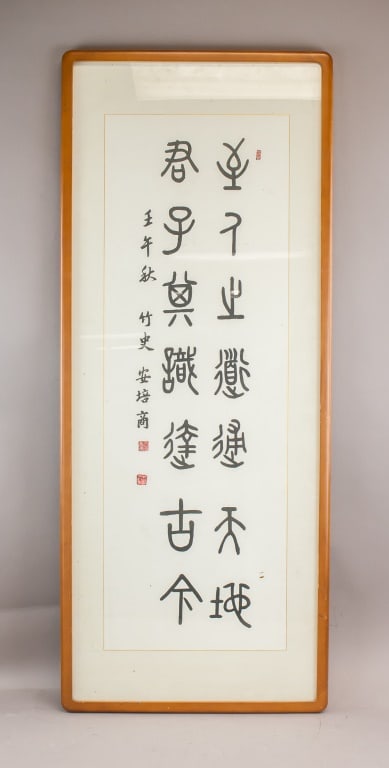 至人之道通天地
君子真識達古今
壬午秋 竹史 安培商